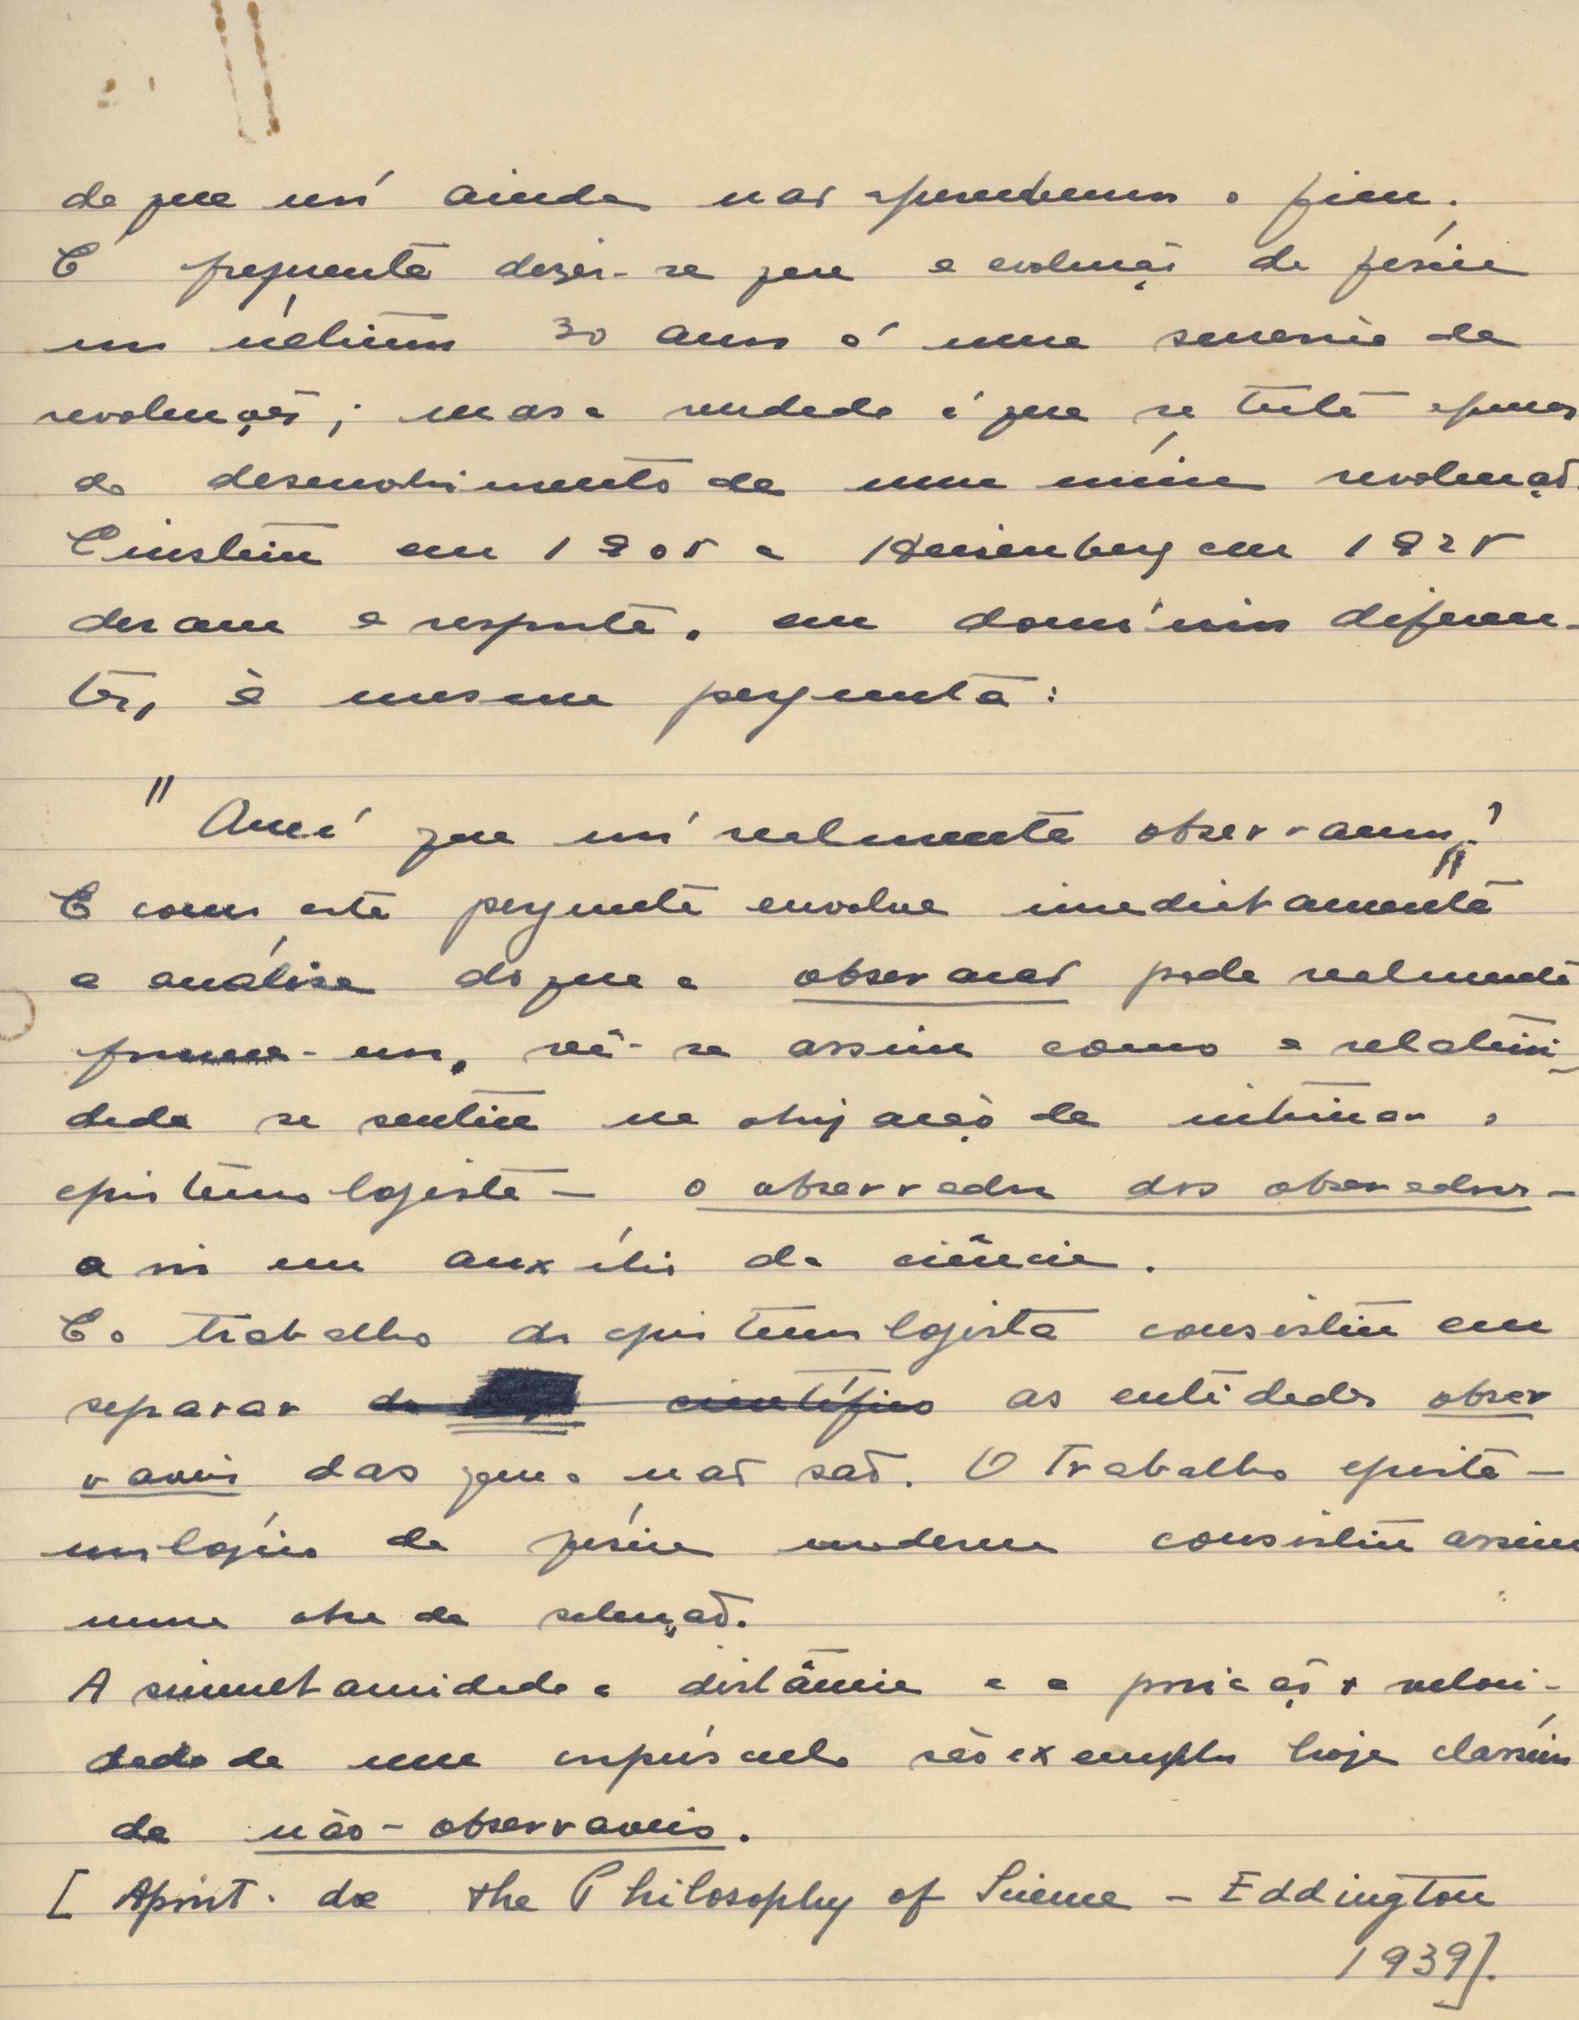 de que nós ainda não apercebemos o fim.
É frequente dizer-se que a evolução da física
nos últimos 30 anos é uma sucessão de
revoluções; mas a verdade é que se trata apenas
do desenvolvimento de uma única revolução.
Einstein em 1905 e Heisenberg em 1925
deram a resposta, em domínios diferen-
tes, à mesma pergunta:
" Que é que nós realmente observamos?"
E como esta pergunta envolve imediatamente
a análise do que a observação pode realmente
fornecer-nos, vê-se assim como a relativi-
dade se sentiu na obrigação de intimar o
epistemologista - o observador dos observadores -
a vir em auxílio da ciência.
E o trabalho do epistemologista consistiu em
separar do científico as entidades obser
vaveis das que o não são. O trabalho episte-
mológico da física moderna consistiu assim
numa obra de selecção.
A simultaneidade a distância e a posição e veloci-
dade de um corpúsculo são exemplos hoje clássicos
de não-observaveis.
[ Apont. de the Philosophy of Science - Eddington
1939].